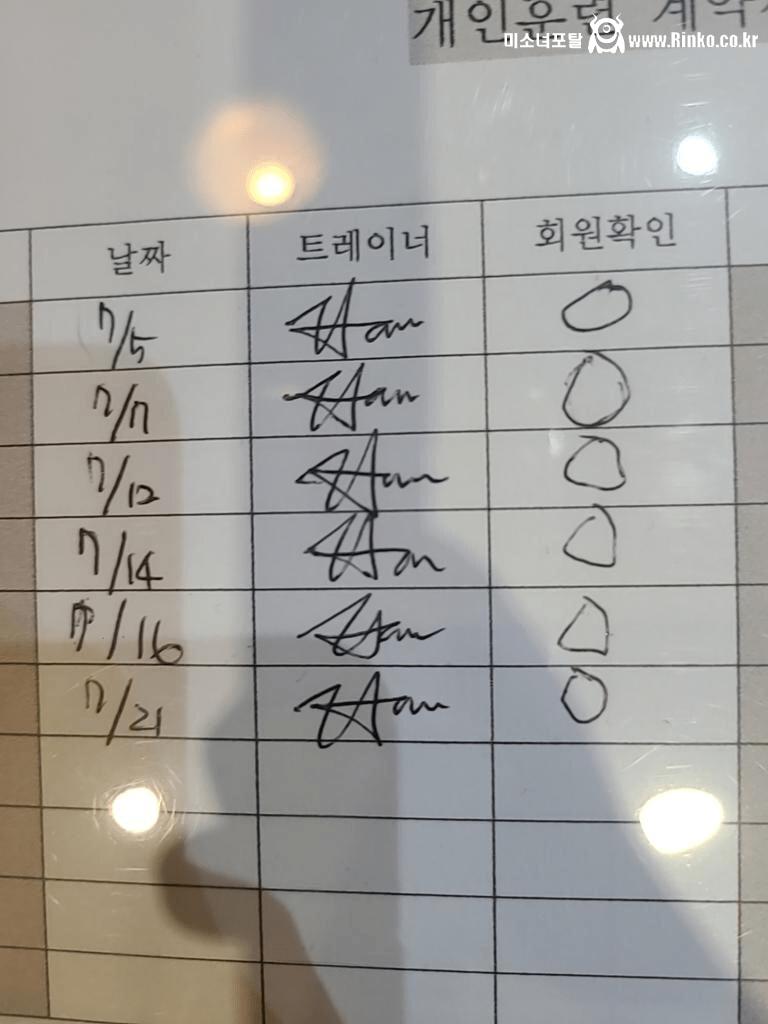 개인훈련 계약
미소녀포탈 www.Rinko.co.kr
날짜 트레이너 회원확인
7/5 Han O
7/7 Han O
7/12 Han O
7/14 Han O
7/16 Han O
7/21 Han O